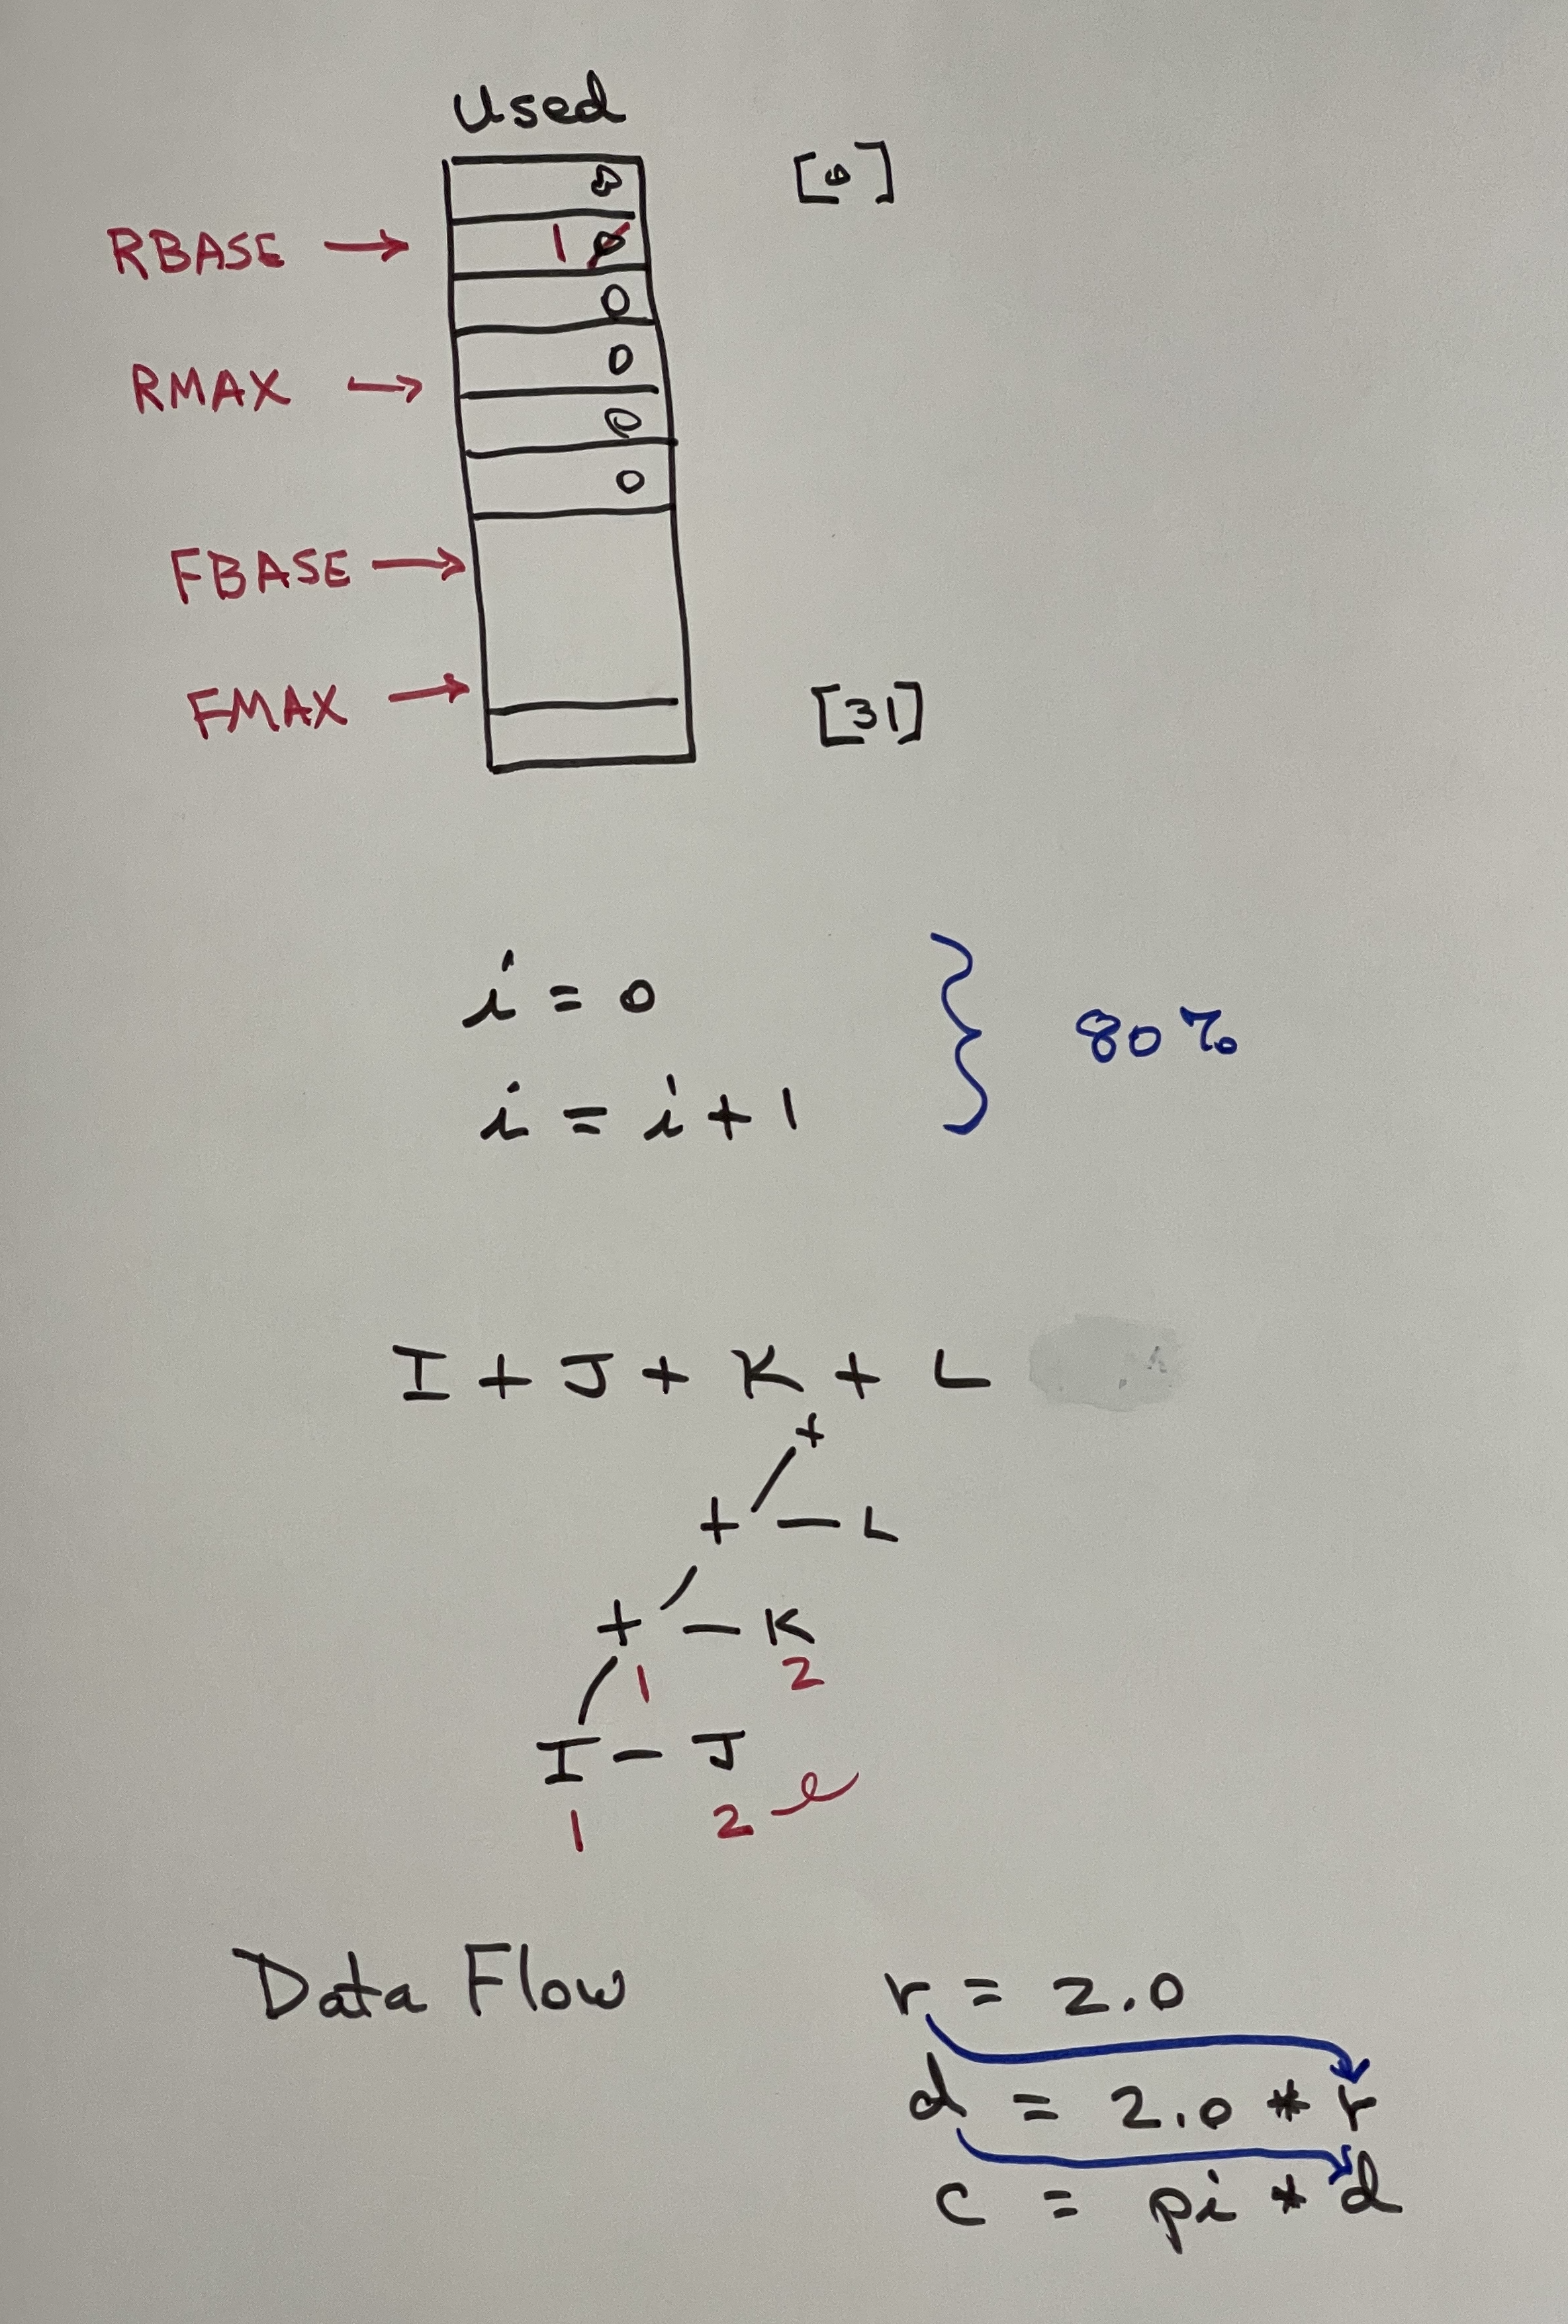 Used
0 [0]
RBASE → 1 0
0
0
RMAX →
0
0
FBASE →
FMAX → [31]
i = 0
80%
i = i + 1
I + J + K + L
+
+ — L
+ — K
1 2
I — J
1 2
Data Flow
r = 2.0
d = 2.0 * r
c = pi * d